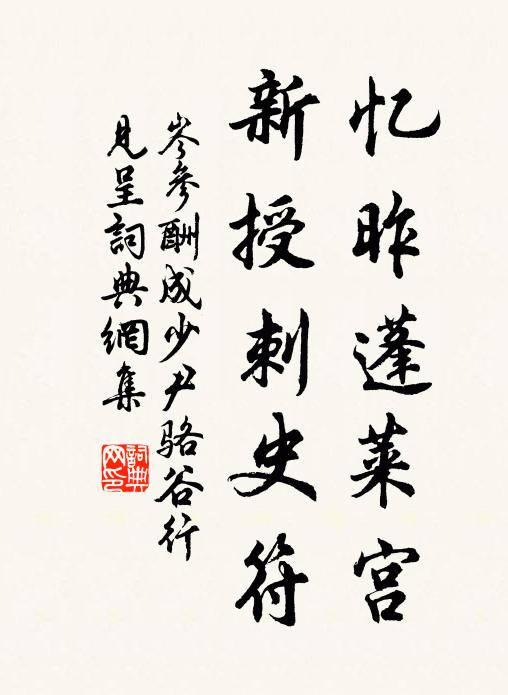 忆昨蓬莱宫
新授刺史符
岑参酬成少尹骆谷行
見呈詞典網集
詞典网印